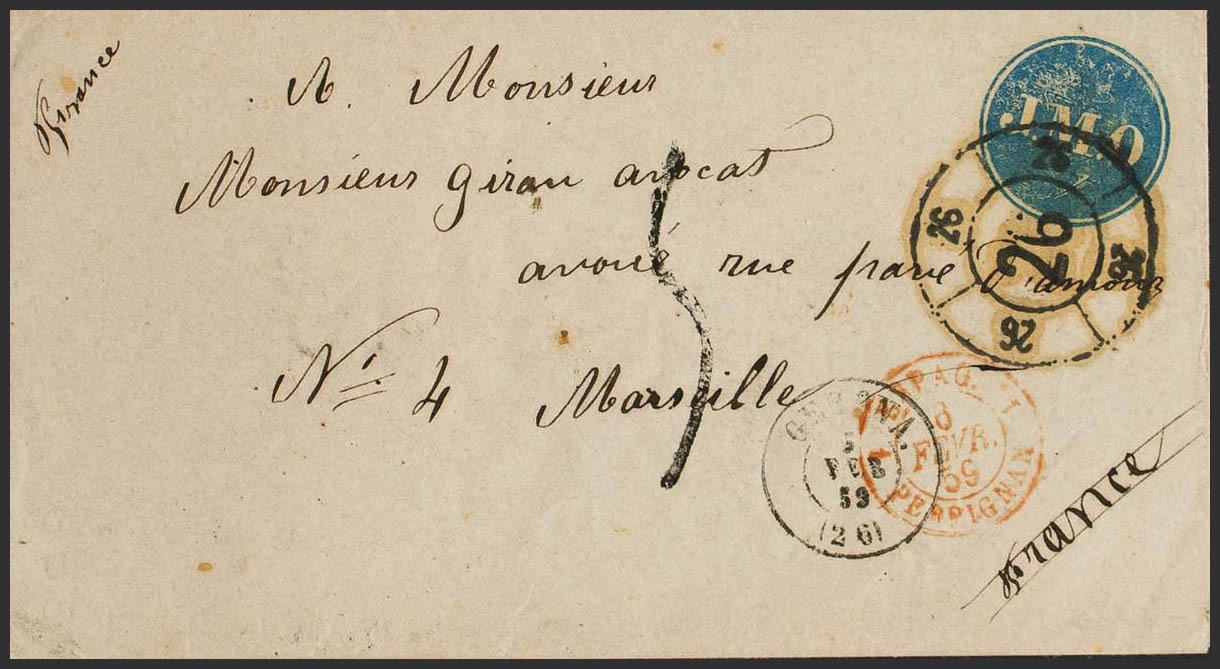 France
A. Monsieur
Monsieur Giran avocat
avoué rue pavé d'amour
Nº 4 Marseille
France
J.M.O
26
26
26
26
26
GERONA.
5
FEB
59
(26)
ESPAG.
6
FEVR.
59
PERPIGNAN